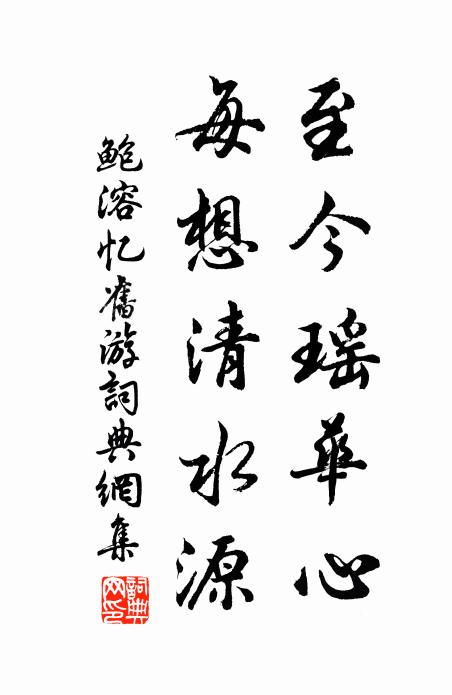 至今瑶華心
每想清水源
鲍溶忆舊游詞典網集
詞典網印